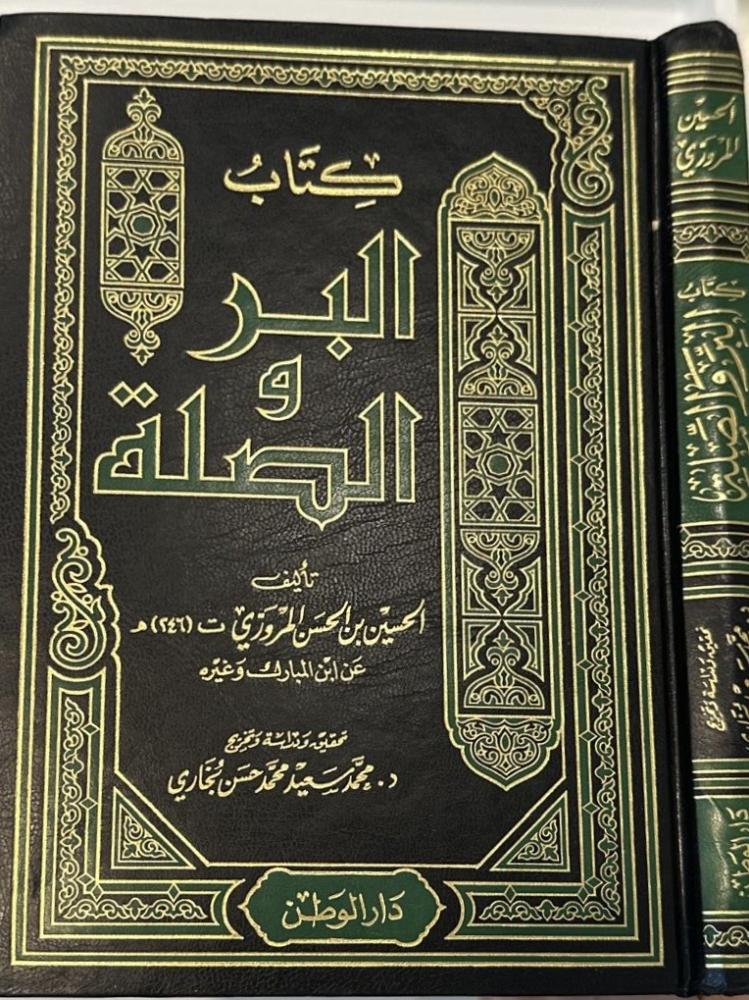 كِتَابُ
البر
و
الصلة
تأليف
الحسين بن الحسن المروزي ت (٢٤٦) هـ
عن ابن المبارك وغيره
تحقيق ودراسة وتخريج
د. محمد سعيد محمد حسن بخاري
دار الوطن
الحسين
المروزي
كتاب
البر والصلة
تحقيق ودراسة وتخريج